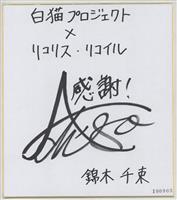 白猫プロジェクト
×
リコリス・リコイル
感謝!
錦木 千束